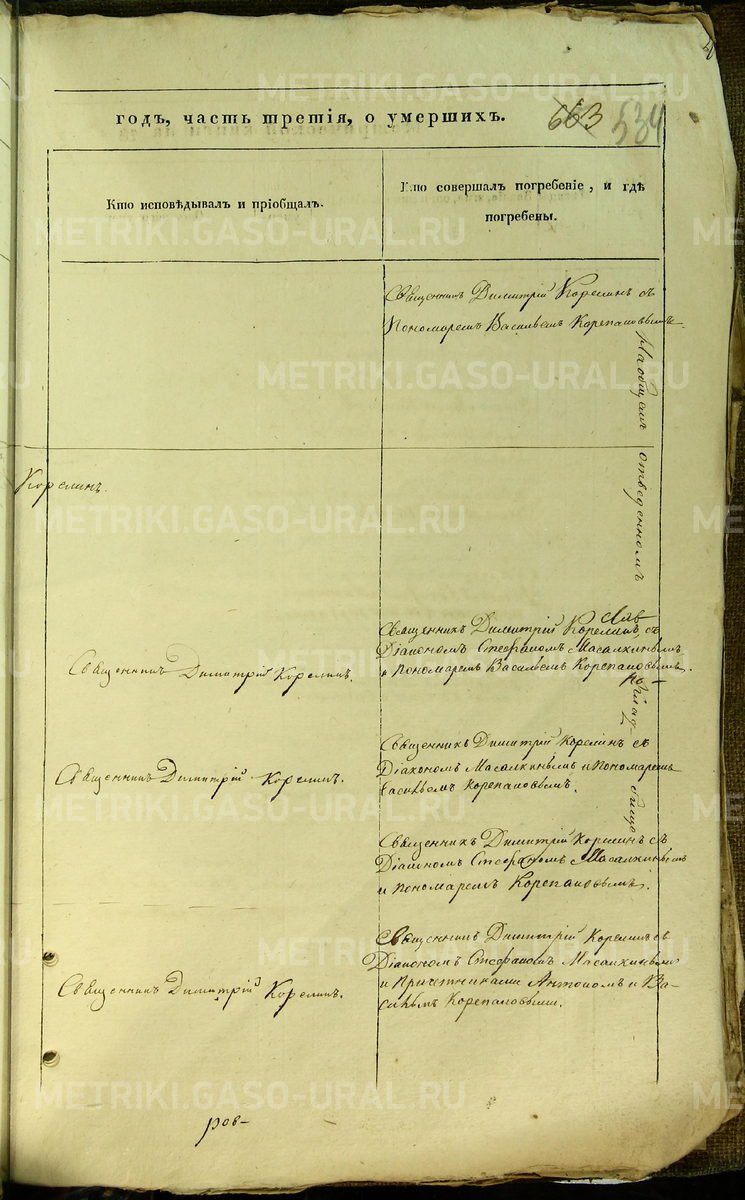 годъ, часть третія, о умершихъ.
663 534
Кто исповѣдывалъ и пріобщалъ.
Кто совершалъ погребеніе, и гдѣ
погребены.
Священникъ Димитрій Корелинъ съ
Пономаремъ Васильемъ Корепановымъ
На общемъ отведенномъ
кладбище
Корелинъ.
Священникъ Димитрій Корелинъ, съ
Діакономъ Стефаномъ Масалкинымъ
и Пономаремъ Васильемъ Корепановымъ.
Священникъ Димитрій Корелинъ.
Священникъ Димитрій Корелинъ съ
Діакономъ Масалкинымъ и Пономаремъ
Васильемъ Корепановымъ.
Священникъ Димитрій Корелинъ.
Священникъ Димитрій Корелинъ съ
Діакономъ Стефаномъ Масалкинымъ
и Пономаремъ Корепановымъ.
Священникъ Димитрій Корелинъ съ
Діакономъ Стефаномъ Масалкинымъ
и Причетниками Антономъ и Ва-
сильемъ Корепановыми.
Священникъ Димитрій Корелинъ.
ров-
METRIKI.GASO-URAL.RU